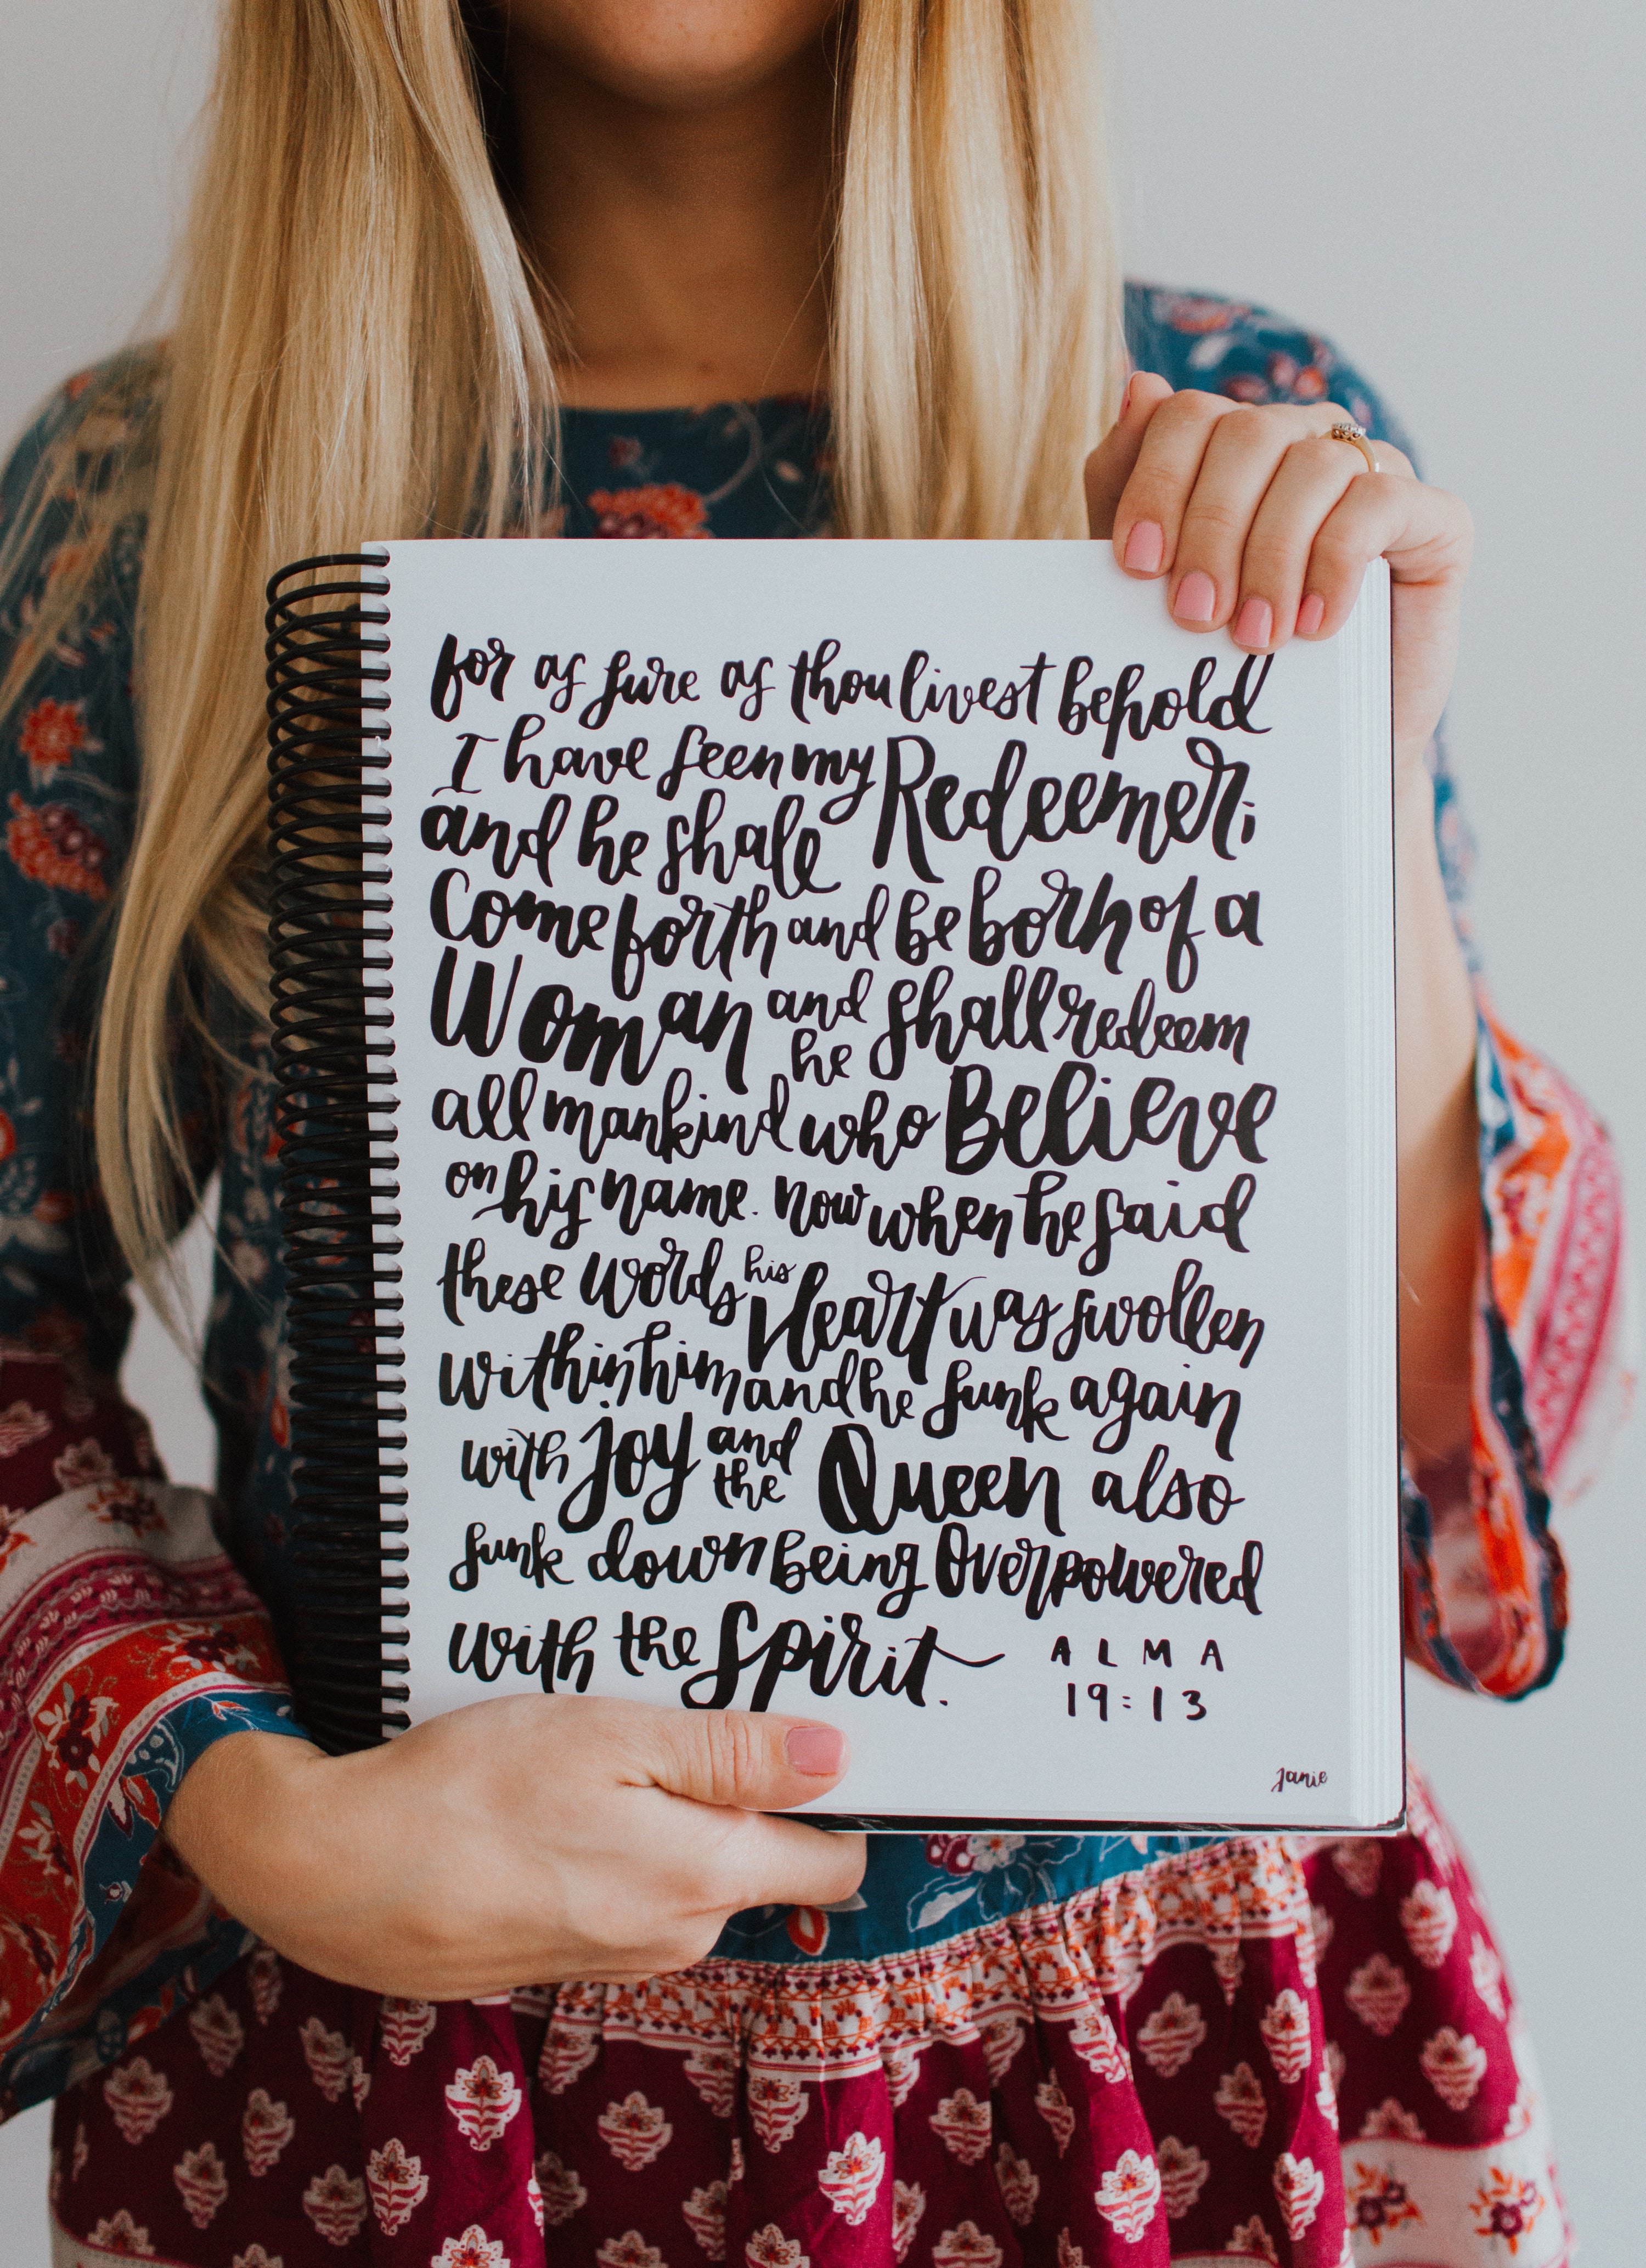 for as sure as thou livest behold
I have seen my Redeemer;
and he shall
Come forth and be born of a
Woman and he shall redeem
all mankind who Believe
on his name. now when he said
these words his Heart was swollen
within him and he sunk again
with joy and the Queen also
sunk down being Overpowered
with the Spirit.
ALMA
19:13
Janie